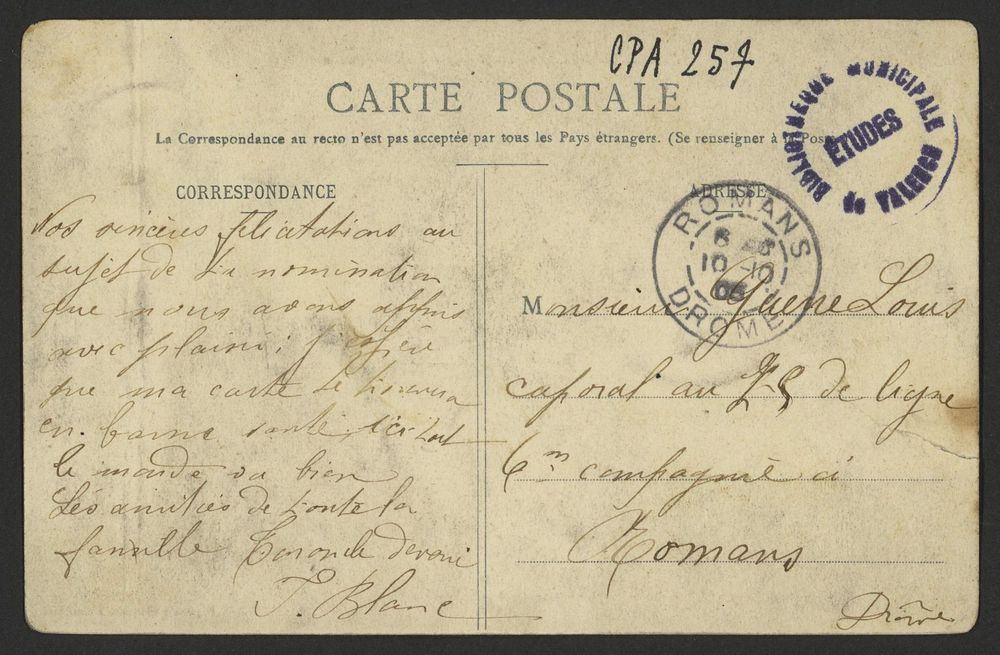 CPA 257
BIBLIOTHEQUE MUNICIPALE DE VALENCE
ÉTUDES
CARTE POSTALE
La Correspondance au recto n'est pas acceptée par tous les Pays étrangers. (Se renseigner à la Poste
CORRESPONDANCE
Nos sincères félicitations au
sujet de ta nomination
que nous avons appris
avec plaisir, j'espère
que ma carte te trouvera
en bonne santé, ici tout
le monde va bien
Les amitiés de toute la
famille
J. Blanc
ADRESSE
ROMANS
DROME
Monsieur Louis
caporal au 75 de ligne
6m compagnie à
Romans
Drôme